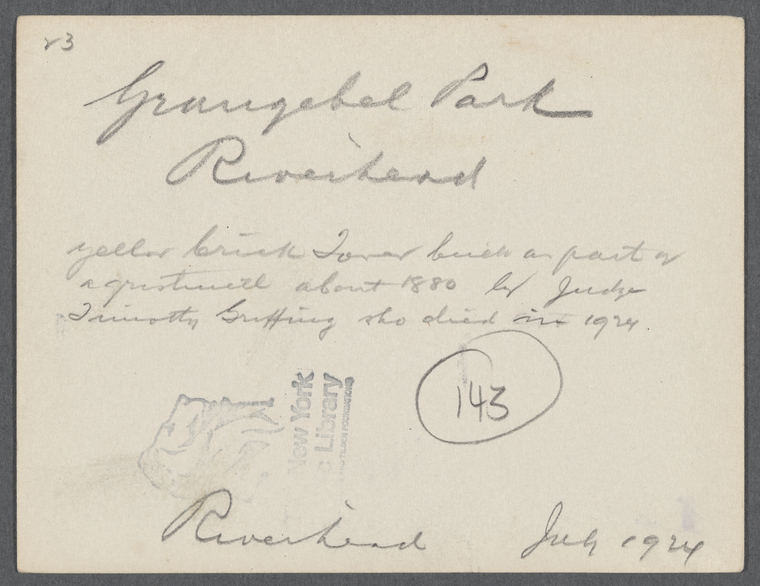 23
Grangebel Park
Riverhead
yellow brick Tower built as part of
a gristmill about 1880 by Judge
Timothy Griffing who died in 1924.
143
New York
c Library
TILDEN FOUNDATIONS
Riverhead July 1924